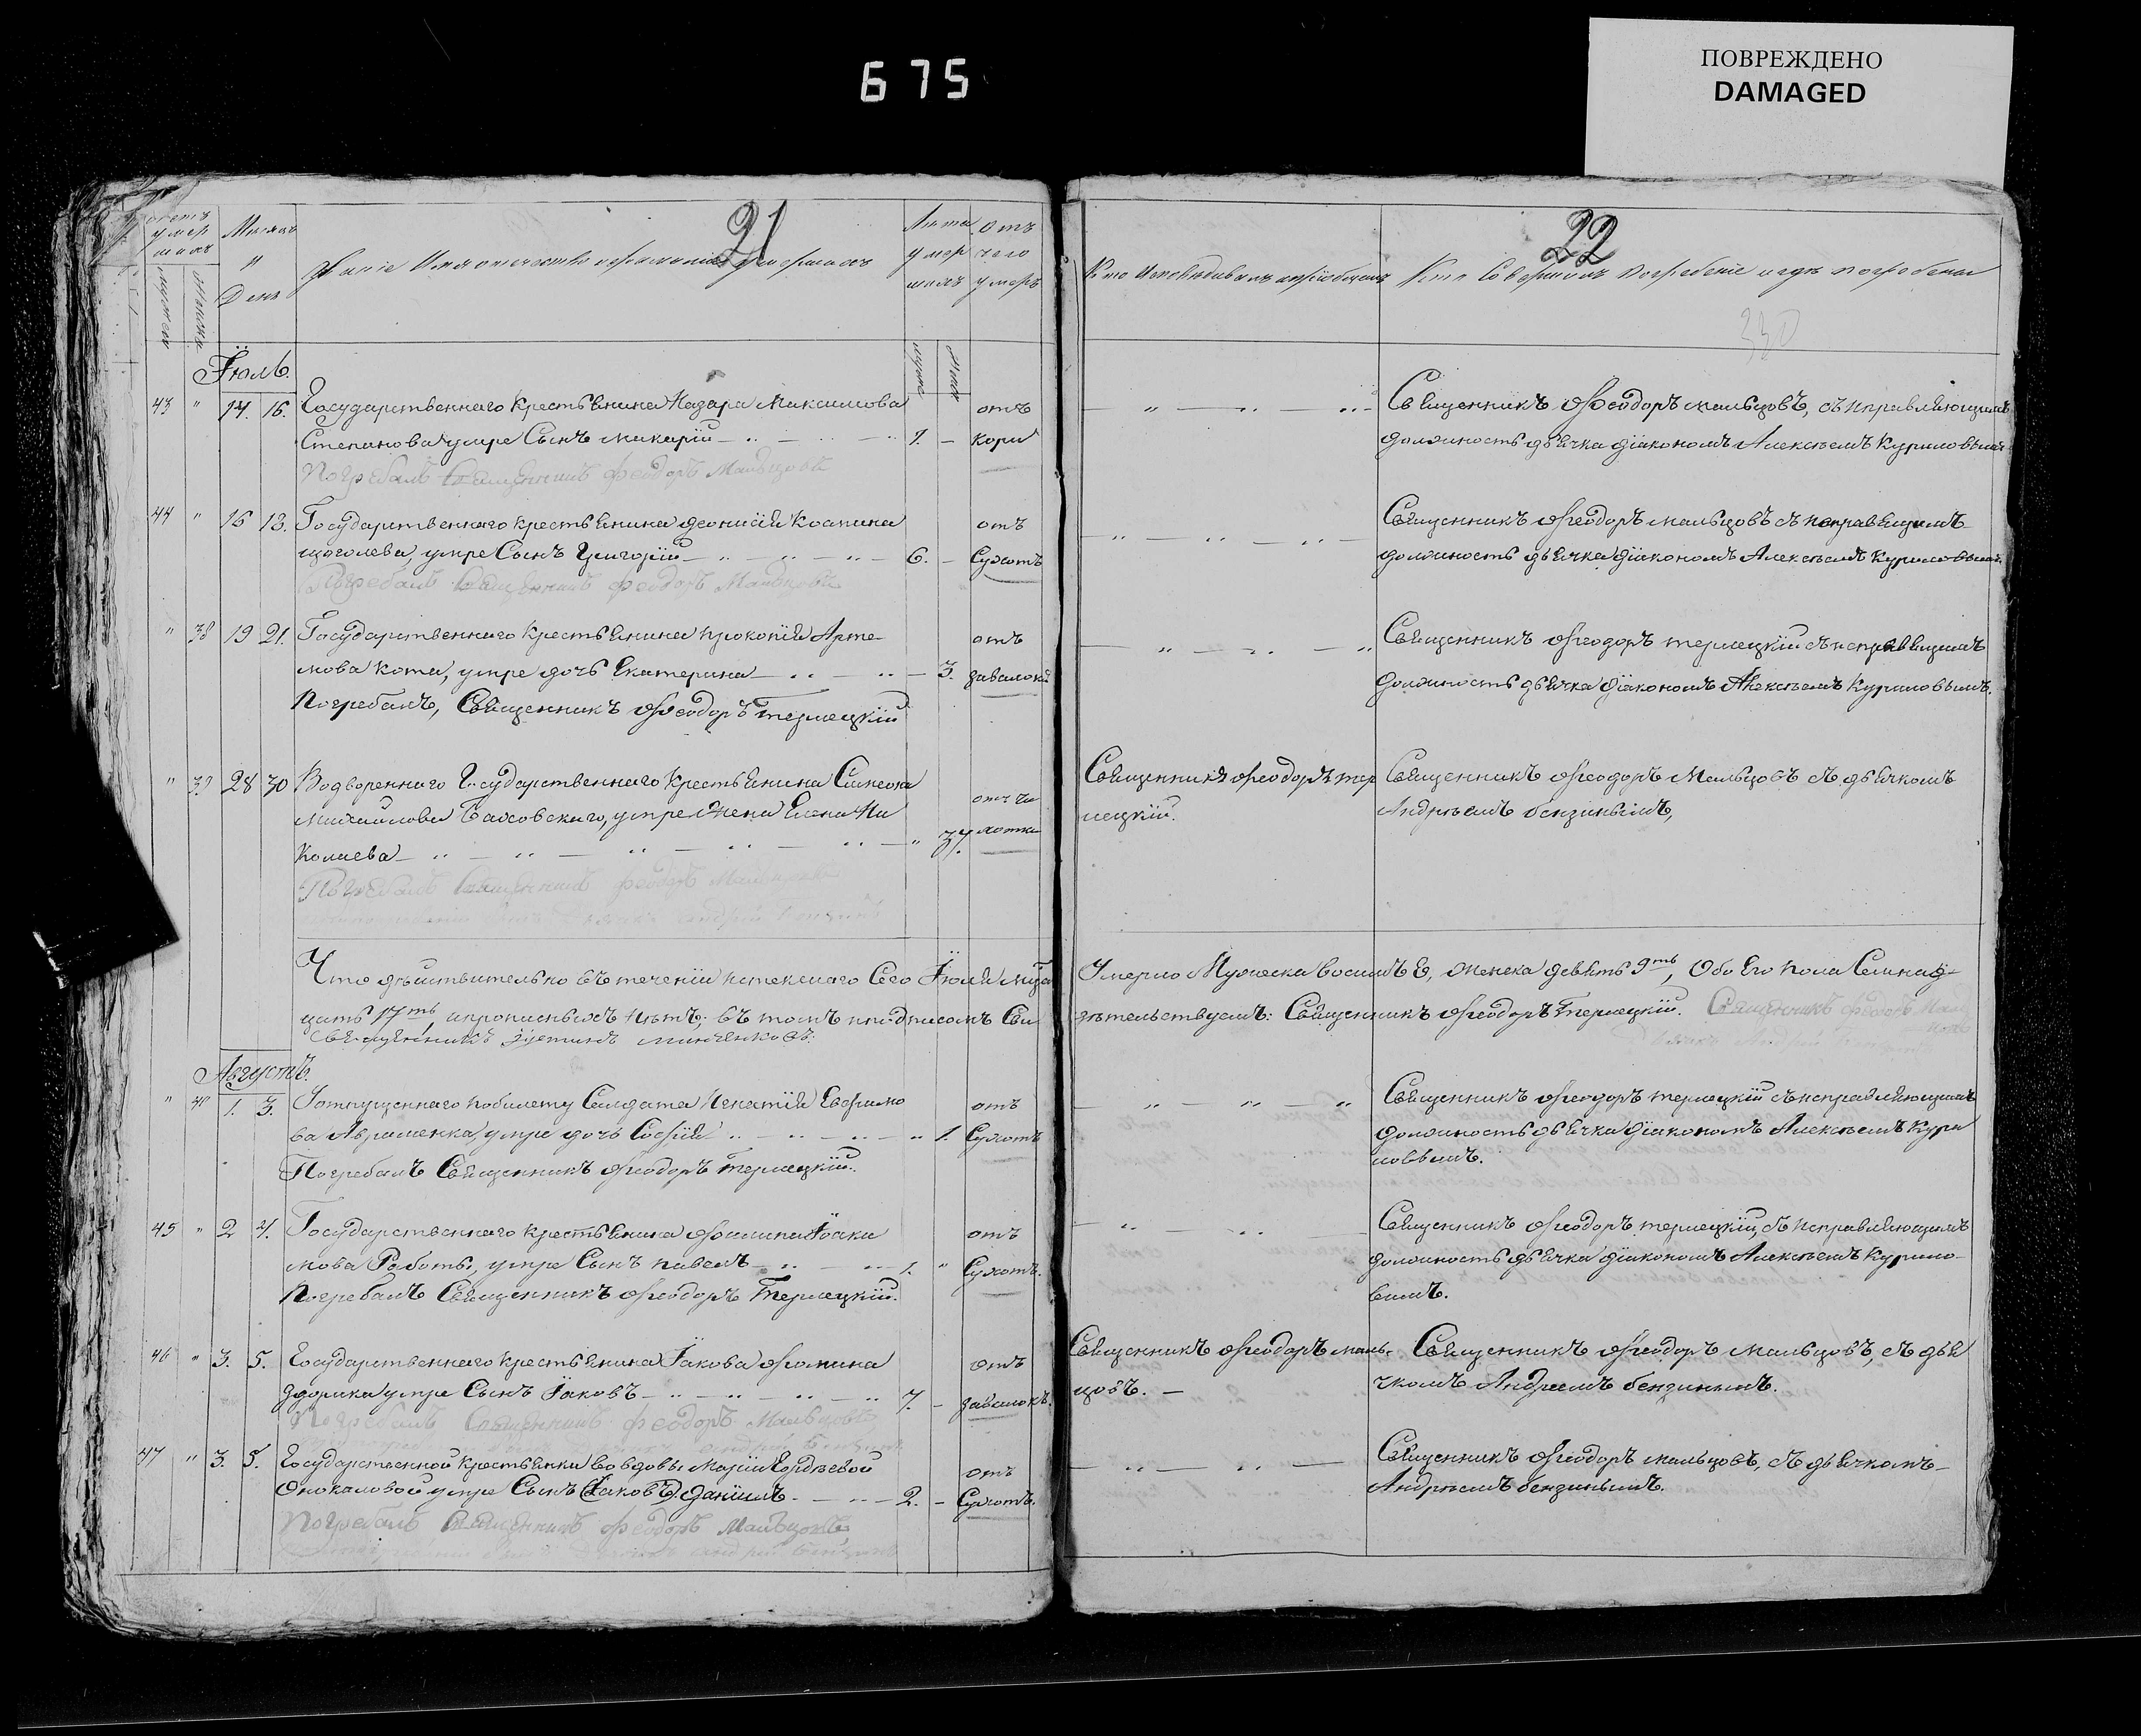 675
ПОВРЕЖДЕНО
DAMAGED
21
счетъ умер шихъ
Мѣсяцъ и День
Званіе Имя отечество и фамилія умершихъ
Лѣта умер шихъ
отъ чего умеръ
мужеска
женска
Іюль.
43 " 14. 16. Государственнаго крестьянина Назара Максимова отъ
Степанова умре Сынъ макарій 1. – кори
Погребалъ Священникъ феодоръ Мальцовъ
44 " 16 18. Государственнаго крестьянина Деонисія Костина отъ
щоголева, умре Сынъ Григорій 6. – Сухотъ
Погребалъ Священникъ феодоръ Мальцовъ
" 38 19 21. Государственнаго крестьянина прокопія Арте- отъ
мова кота, умре дочь Екатерина – 3. завалокъ
Погребалъ, Священникъ Ѳеодоръ Термецкій
" 39 28 30 Водвореннаго Государственнаго крестьянина Симеона
Михайлова умре Жена Елена Ни отъ ча
колаева " 37. хотки
Погребалъ Священникъ феодоръ Мальцовъ
Дьячокъ Андрій Бензинъ
Что дѣйствительно въ теченіи истекшаго Сего Іюля мѣся
цать 17ть а прописныхъ нѣтъ; въ томъ и подписомъ Сви
Священникъ Іустинъ минченковъ.
Августъ.
" 40 1. 3. Уотпущеннаго побилету Салдата Игнатія Евфимо отъ
ва Авраменка, умре дочь Софія " 1. Сухотъ
Погребалъ Священникъ Ѳеодоръ Термецкій.
45 " 2 4. Государственнаго крестьянина филипа Іоаки отъ
мова Роботы, умре Сынъ павелъ 1. " Сухотъ.
Погребалъ Священникъ Ѳеодоръ Термецкій.
46 " 3. 5. Государственнаго крестьянина Іакова фомина отъ
здорика умре Сынъ Іаковъ 7. – завалокъ.
Погребалъ Священникъ феодоръ Мальцовъ
47 " 3. 5. Государственной крестьянки вовдовы Маріи Гордѣевой отъ
умре Сынъ (Іаковъ) Даніилъ. 2. – Сухотъ.
Погребалъ Священникъ феодоръ Мальцовъ
Дьячокъ Андрій Бензинъ
22
Кто Исповѣдывалъ и пріобщалъ
Кто Совершалъ погребеніе и гдѣ погребены
330
Священникъ Ѳеодоръ мальцовъ, съ исправляющимъ
должность дьячка діакономъ Алексѣемъ Куриловымъ.
Священникъ Ѳеодоръ мальцовъ съ исправящимъ
должность дьячка діакономъ Алексѣемъ Куриловымъ.
Священникъ Ѳеодоръ термецкій съ исправящимъ
должность дьячка діакономъ Алексѣемъ Куриловымъ.
Священникъ Ѳеодоръ тер
мецкій.
Священникъ Ѳеодоръ Мальцовъ съ дьячкомъ
Андрѣемъ бензинымъ,
Умерло Мужеска восимь 8, женска девять 9ть, Обоего пола Семнад-
дѣтельствуемъ: Священникъ Ѳеодоръ Термецкій. Священникъ феодоръ Маль
цовъ
Дьячокъ Андрій Бензинъ
Священникъ Ѳеодоръ термецкій съ исправляющимъ
должность дьячка діакономъ Алексѣемъ Кури
ловымъ.
Священникъ Ѳеодоръ термецкій, съ исправляющимъ
должность дьячка діакономъ Алексѣемъ Курило-
вымъ.
Священникъ Ѳеодоръ маль-
цовъ. –
Священникъ Ѳеодоръ мальцовъ, съ дья
чкомъ Андреемъ бензинымъ.
Священникъ Ѳеодоръ мальцовъ, съ дьячкомъ
Андрѣемъ бензинымъ.